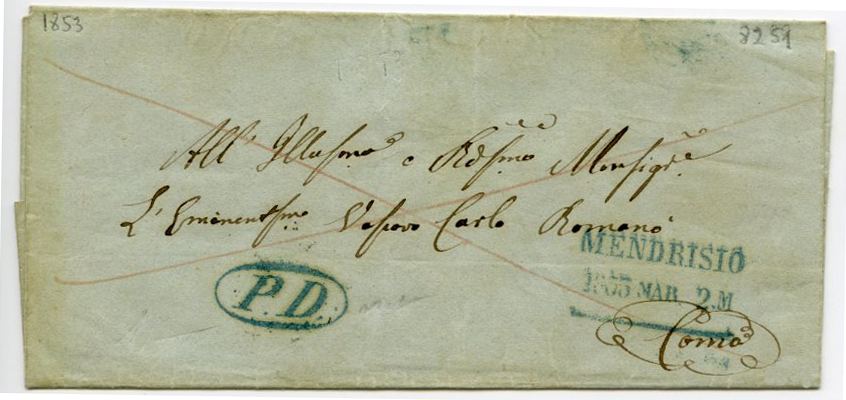 1853
8251
All' Illusmo e Rdsmo Monsigre
L'Eminentsmo Vescovo Carlo Romanó
MENDRISIO
MAR 2.M
P.D.
Como